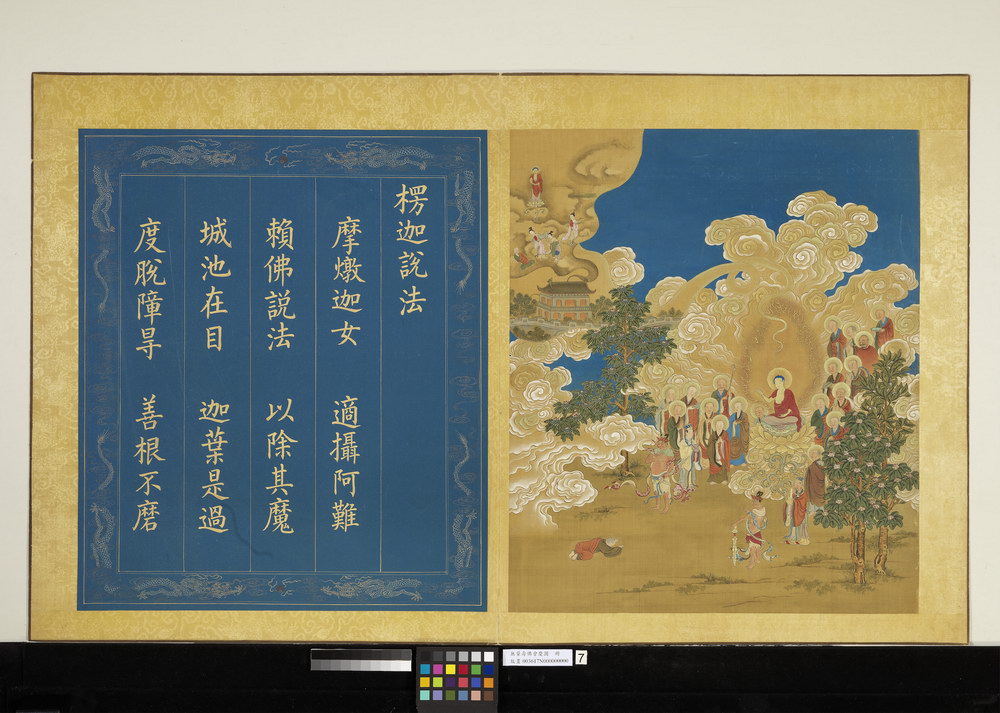 楞迦說法
摩燉迦女 適攝阿難
賴佛説法 以除其魔
城池在目 迦葉是過
度脫障㝵 善根不磨
7